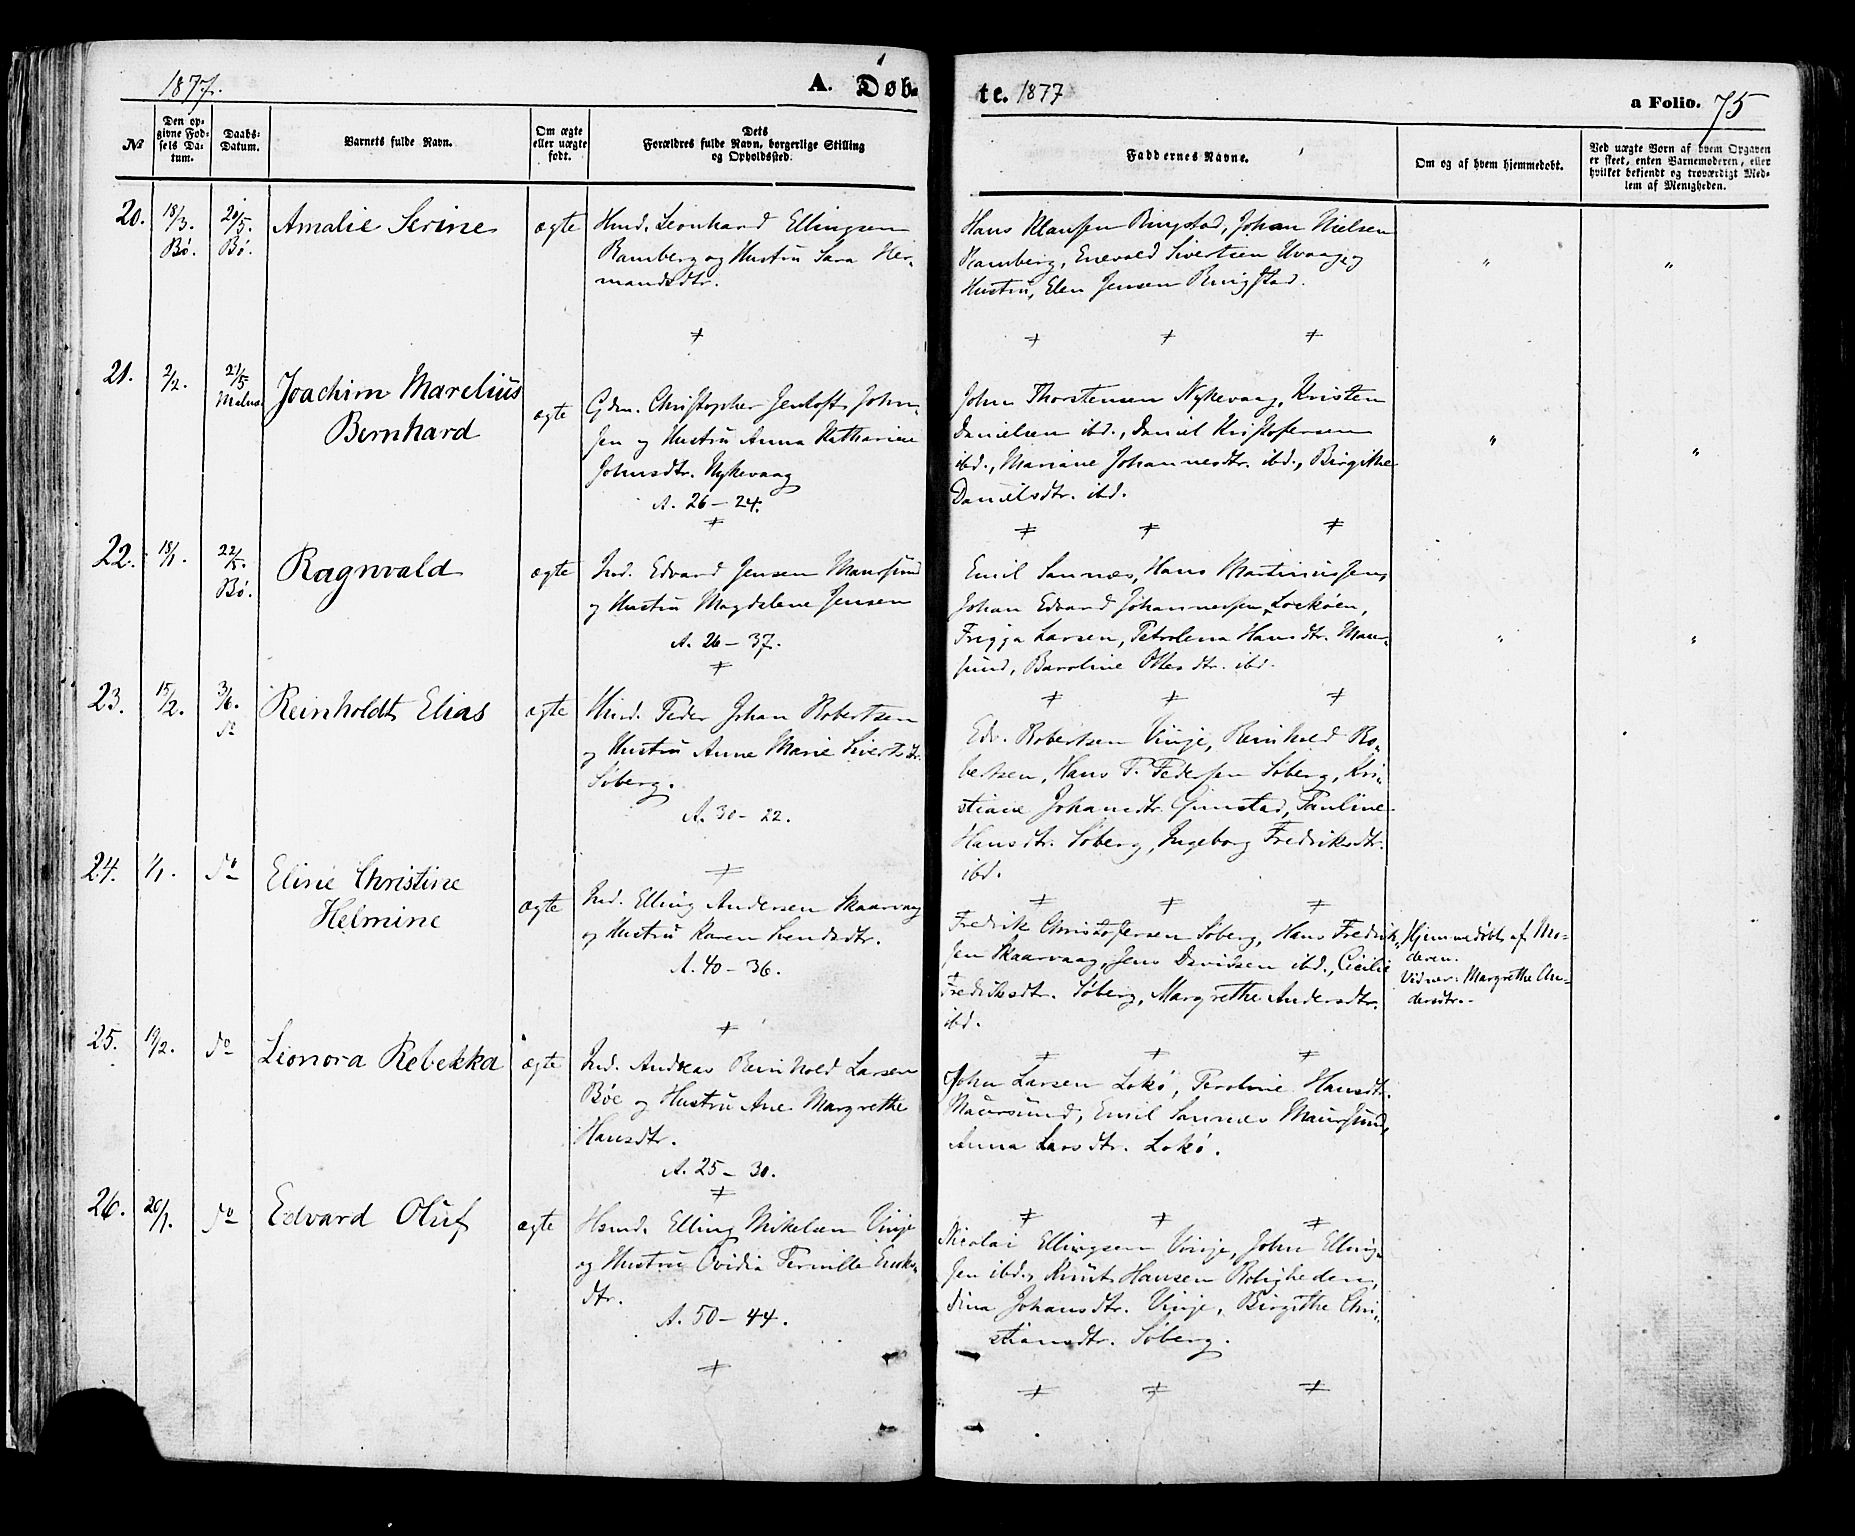 1877.
A. Døb-
te. 1877
a Folio. 75
№
Den op-
givne Fød-
sels Da-
tum.
Daabs-
Datum.
Barnets fulde Navn.
Om ægte
eller uægte
født.
Dets
Forældres fulde Navn, borgerlige Stilling
og Opholdssted.
Faddernes Navne.
Om og af hvem hjemmedøbt.
Ved uægte Børn af hvem Opgaven
er skeet, enten Barnemoderen, eller
hvilket bekjendt og troværdigt Med-
lem af Menigheden.
20.
18/3.
Bø.
20/5.
Bø.
Amalie Serine
ægte
Hmd. Leonhard Ellingsen
Ramberg og Hustru Sara Her-
mandsdtr.
Hans Klausen Ringstad, Johan Nielsen
Ramberg, Enevold Sivertsen Uvaag, og
Hustru, Elen Jensen Ringstad.
21.
2/2.
21/5
Malnes
Joachim Marelius
Bernhard
ægte
Gdm. Christopher Jentoft John-
sen og Hustru Anna Katharine
Johnsdtr. Nykevaag
A. 26 - 24.
John Thorstensen Nykevaag, Kristen
Danielsen ibd., Daniel Kristofersen
ibd., Mariane Johannesdtr. ibd., Birgithe
Danielsdtr. ibd.
22.
18/1.
22/5.
Bø.
Ragnvald
ægte
Ind. Edvard Jensen Maursund
og Hustru Magdalene Jensen
A. 26 - 37.
Emil Sannes, Hans Martinussen,
Johan Edvard Johannessen Lorkøen,
Frigga Larsen, Petrolena Hansdtr. Maur-
sund, Baroline Olesdtr. ibd.
23.
15/2.
3/6.
do
Reinholdt Elias
ægte
Hmd. Peder Johan Robertsen
og Hustru Anne Marie Sivertsdtr.
Søberg.
A. 30 - 22.
Edv. Robertsen Vinje, Reinhold Ro-
bertsen, Hans P. Pedersen Søberg, Kri-
stiane Johansdtr. Gimstad, Pauline
Hansdtr. Søberg, Ingeborg Fredriksdtr.
ibd.
24.
1/1.
do
Eline Christine
Helmine
ægte
Ind. Elling Andersen Skaarvaag
og Hustru Karen Svendsdtr.
A. 40 - 36.
Fredrik Christofersen Søberg, Hans Fredrik-
sen Skaarvaag, Jens Davidsen ibd., Cicilie
Fredriksdtr. Søberg, Margrethe Andersdtr.
ibd.
Hjemmedøbt af Mo-
deren.
Vidner: Margrethe An-
dersdtr.
25.
19/2.
do
Lionora Rebekka
ægte
Ind. Andreas Reinhold Larsen
Bøe og Hustru Ane Margrethe
Hansdtr.
A. 25 - 30.
John Larsen Lokø, Peroline Hansdtr.
Maursund, Emil Sannes Maursund,
Anna Larsdtr. Lokø.
26.
26/1.
do
Edvard Oluf
ægte
Hsmd. Elling Mikelsen Vinje
og Hustru Ovidia Pernille Eriks-
dtr.
A. 50 - 44.
Nicolai Ellingsen Vinje, John Elling-
sen ibd., Knut Hansen Roligheden,
Dina Johansdtr. Vinje, Birgithe Chri-
stiansdtr. Søberg.